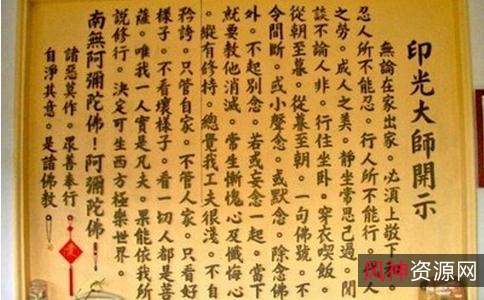 印光大師開示
無論在家出家。必須上敬下和。
忍人所不能忍。行人所不能行。代人
之勞。成人之美。靜坐常思己過。閒
談不論人非。行住坐卧。穿衣喫飯。
從朝至暮。從暮至朝。一句佛號。不
令間斷。或小聲念。或默念。除念佛
外。不起別念。若或妄念一起。當下
就要教他消滅。常生慚愧心及懺悔心
。縱有修持。總覺我工夫很淺。不自
矜誇。只管自家。不管人家。只看好
樣子。不看壞樣子。看一切人都是菩
薩。唯我一人實是凡夫。果能依我所
說修行。決定可生西方極樂世界。
南無阿彌陀佛！阿彌陀佛！
諸惡莫作。眾善奉行。
自淨其意。是諸佛教。
风神资源网